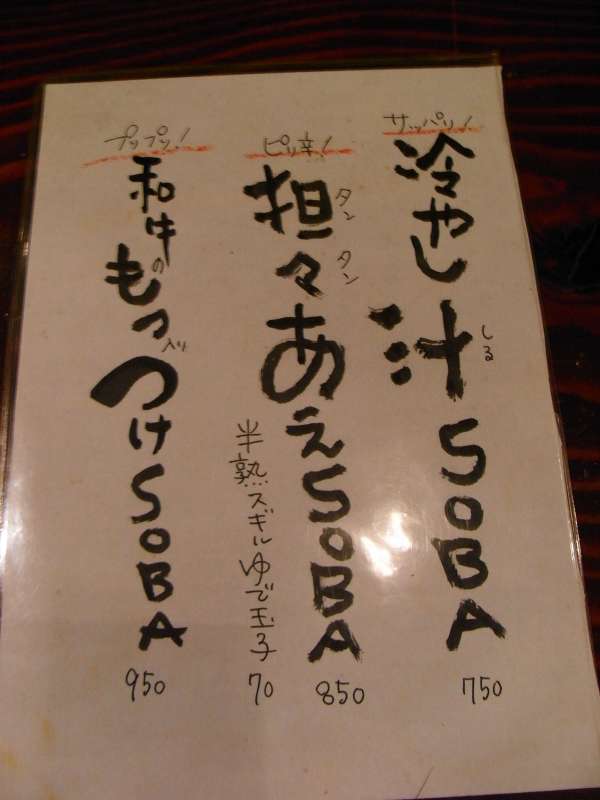 サッパリ!
冷やし汁SOBA
しる
750
ピリ辛!
担々あえSOBA
タンタン
850
半熟スギルゆで玉子
70
プリプリ!
和牛のもつ入りつけSOBA
950